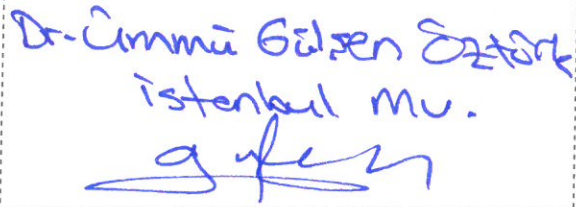 Dr. Ümmü Gülşen Öztürk
İstanbul Mv.